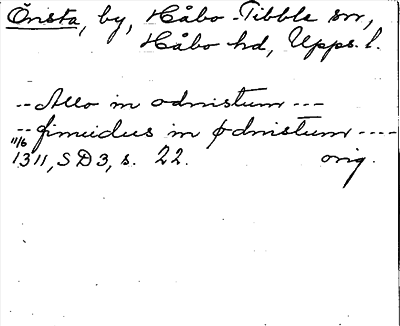 Önsta, by, Håbo-Tibble sn,
Håbo hd, Upps. l.
-- Allo in odnistum ---
-- finuidus in ødnistum ----
11/6
1311, SD3, s. 22. orig.